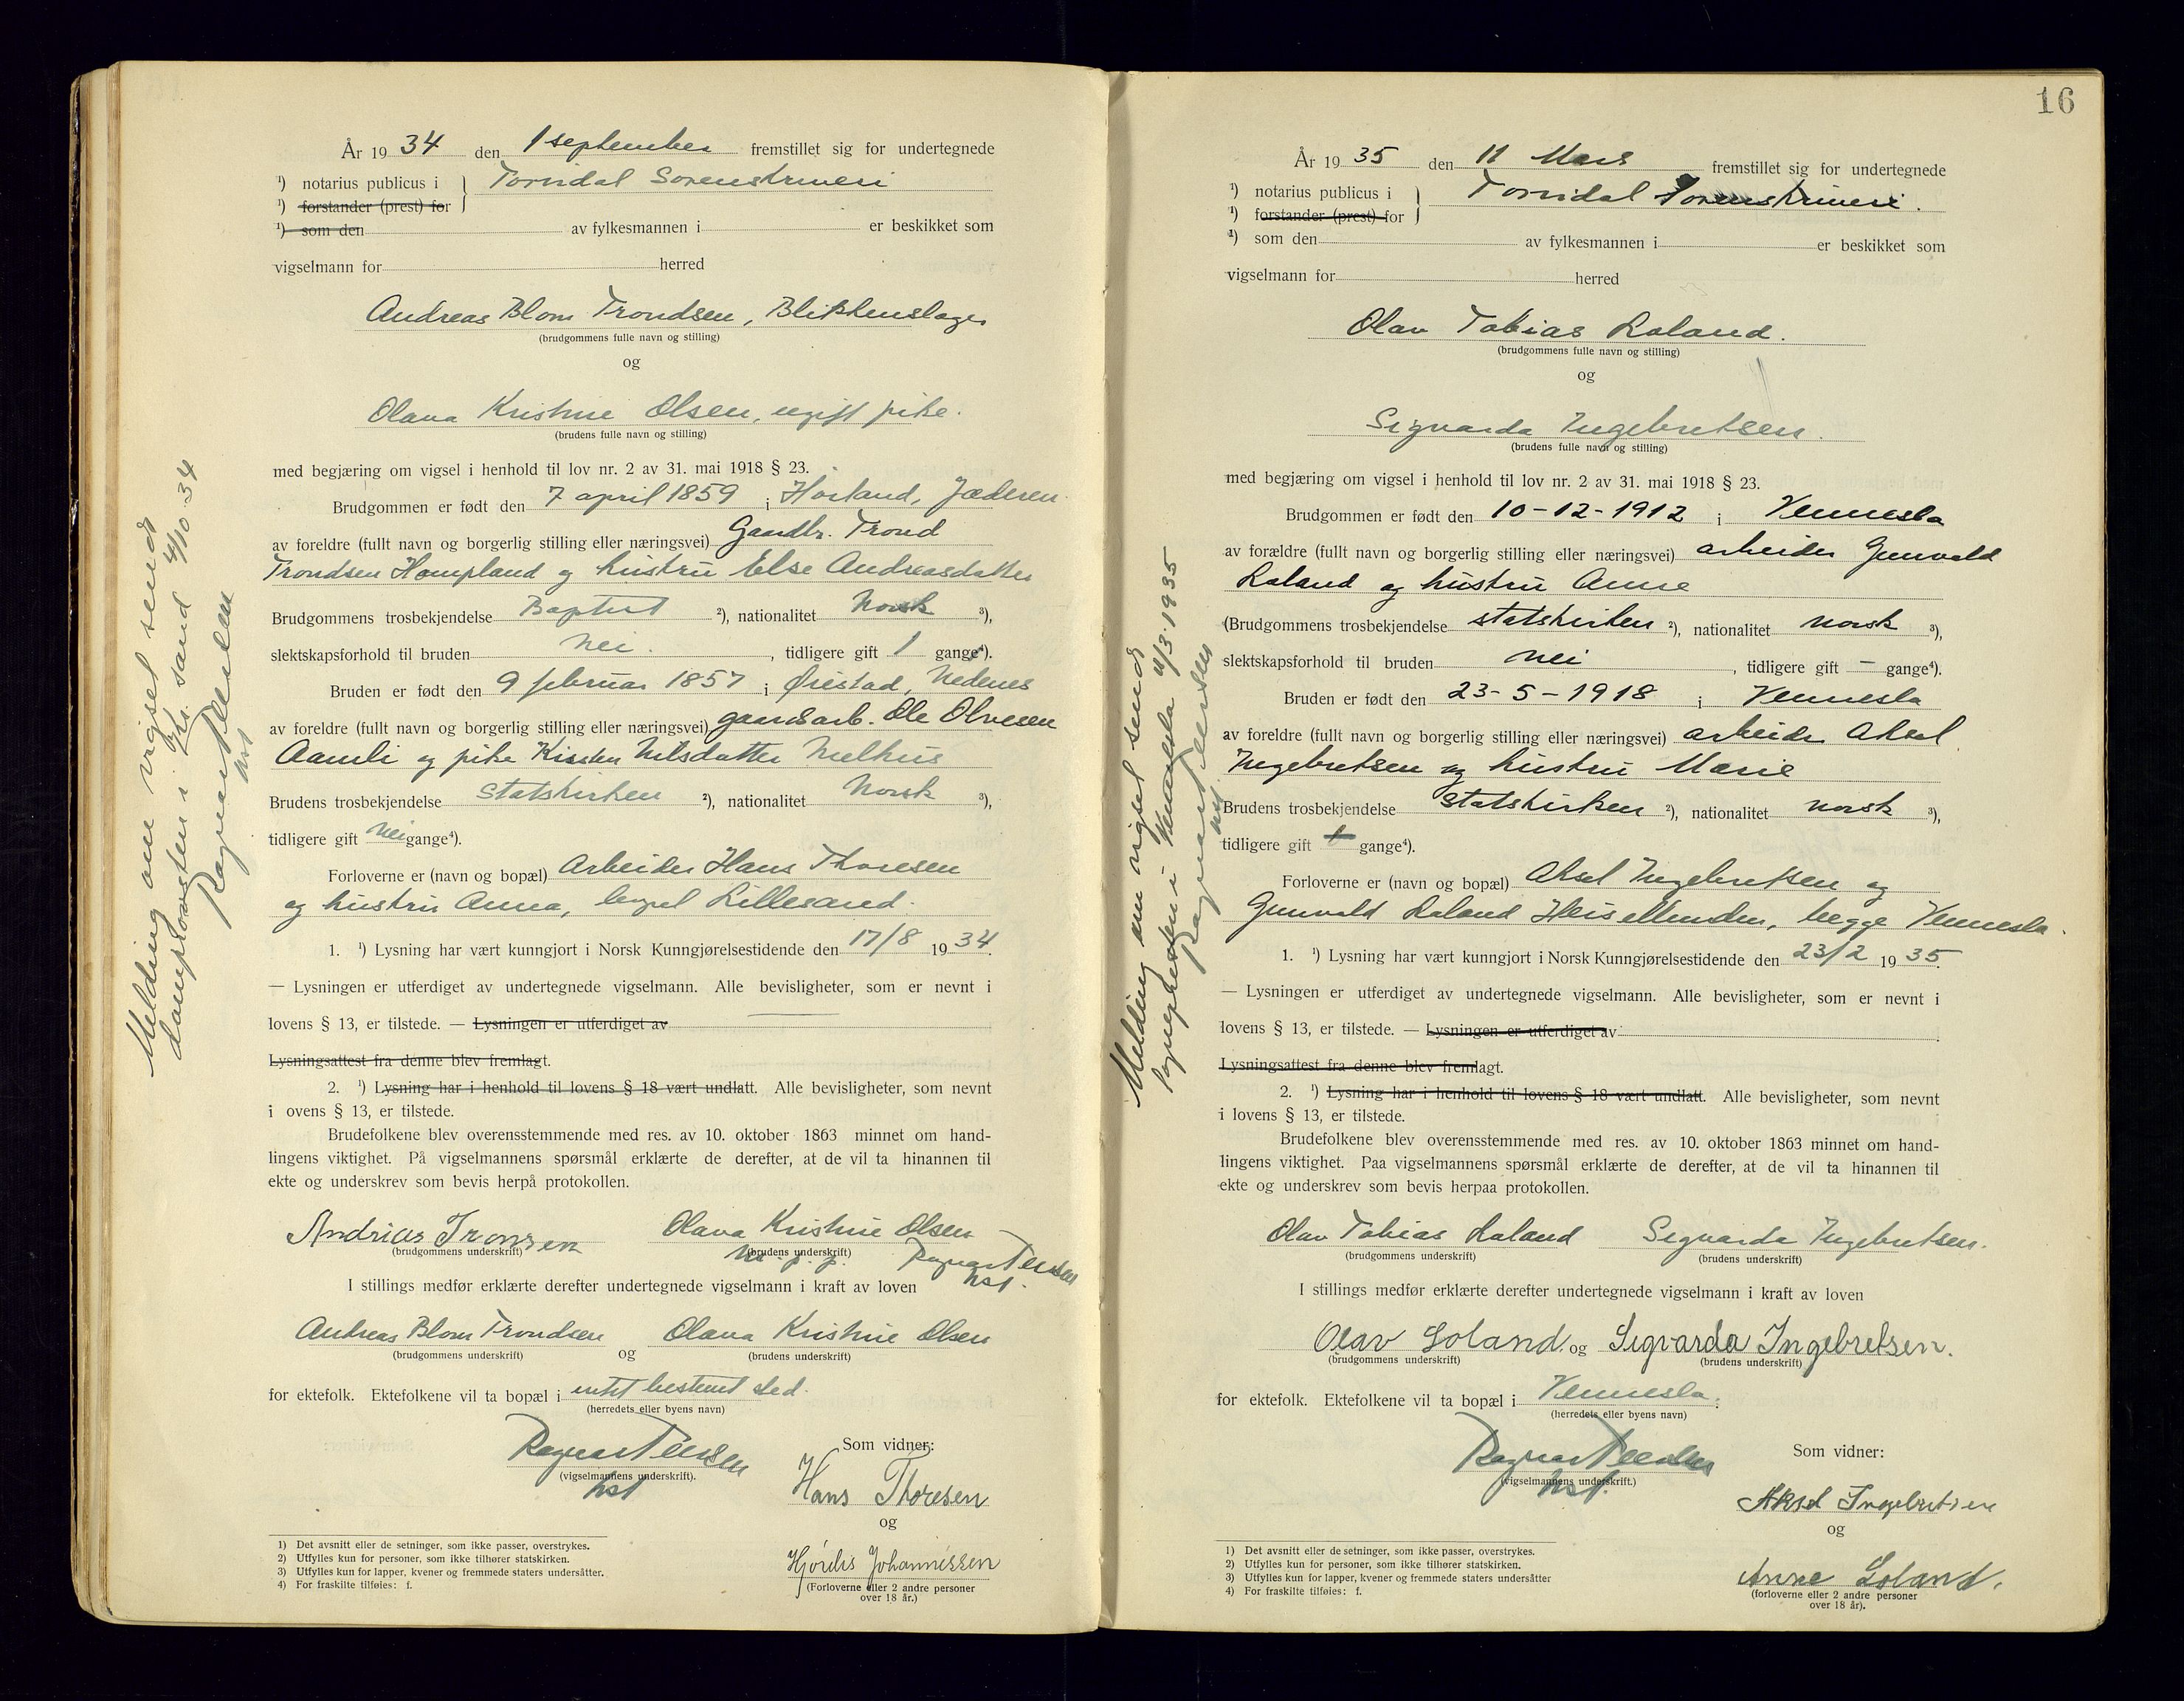 År 19 34 den 1 september fremstillet sig for undertegnede
¹) notarius publicus i } Torridal Sorenskriveri
¹) forstander (prest) for
¹) som den av fylkesmannen i er beskikket som
vigselmann for herred
Andreas Blom Trondsen, Blikkenslager
(brudgommens fulle navn og stilling)
og
Olava Kristine Olsen, ugift pike.
(brudens fulle navn og stilling)
med begjæring om vigsel i henhold til lov nr. 2 av 31. mai 1918 § 23.
Brudgommen er født den 7 april 1859 i Jæderen
av foreldre (fullt navn og borgerlig stilling eller næringsvei) Gaardbr. Trond
Trondsen Hompland og hustru Else Andreasdatter
Brudgommens trosbekjendelse Baptist ²), nationalitet Norsk ³),
slektskapsforhold til bruden Nei. , tidligere gift 1 gange⁴).
Bruden er født den 9 februar 1857 i Øiestad, Nedenes
av foreldre (fullt navn og borgerlig stilling eller næringsvei) gaardsarb. Ole Olvesen
Aamli og pike Kirsten Nilsdatter
Brudens trosbekjendelse Statskirken ²), nationalitet Norsk ³),
tidligere gift Nei gange⁴).
Forloverne er (navn og bopæl) Arbeider Hans Thoresen
og hustru Anna, bopæl Lillesand.
1. ¹) Lysning har vært kunngjort i Norsk Kunngjørelsestidende den 17/8 19 34.
— Lysningen er utferdiget av undertegnede vigselmann. Alle bevisligheter, som er nevnt i
lovens § 13, er tilstede. — Lysningen er utferdiget av
Lysningsattest fra denne blev fremlagt.
2. ¹) Lysning har i henhold til lovens § 18 vært undlatt. Alle bevisligheter, som nevnt
i ovens § 13, er tilstede.
Brudefolkene blev overensstemmende med res. av 10. oktober 1863 minnet om hand-
lingens viktighet. På vigselmannens spørsmål erklærte de derefter, at de vil ta hinannen til
ekte og underskrev som bevis herpå protokollen.
Andrias Tronsen Olava Kristine Olsen
(brudgommens underskrift) (brudens underskrift)
m. p. p. Ragnar
nst.
I stillings medfør erklærte derefter undertegnede vigselmann i kraft av loven
Andreas Blom Trondsen og Olava Kristine Olsen
(brudgommens underskrift) (brudens underskrift)
for ektefolk. Ektefolkene vil ta bopæl i intet bestemt sted.
(herredets eller byens navn)
Ragnar
(vigselmannens underskrift).
nst
Som vidner:
Hans Thoresen
og
Hjördis Johannessen
(Forloverne eller 2 andre personer
over 18 år.)
1) Det avsnitt eller de setninger, som ikke passer, overstrykes.
2) Utfylles kun for personer, som ikke tilhører statskirken.
3) Utfylles kun for lapper, kvener og fremmede staters undersåtter.
4) For fraskilte tilføies: f.
Melding om vigsel sendt
domprovsten i Kr.sand 4/10 34
Ragnar
nst
16
År 19 35 den 11 Mars fremstillet sig for undertegnede
¹) notarius publicus i } Torridal Sorenskriveri.
¹) forstander (prest) for
¹) som den av fylkesmannen i er beskikket som
vigselmann for herred
Olav Tobias Loland.
(brudgommens fulle navn og stilling)
og
Sigvarda Ingebretsen.
(brudens fulle navn og stilling)
med begjæring om vigsel i henhold til lov nr. 2 av 31. mai 1918 § 23.
Brudgommen er født den 10-12-1912 i Vennesla
av forældre (fullt navn og borgerlig stilling eller næringsvei) arbeider Gunvald
Loland og hustru Anne
(Brudgommens trosbekjendelse statskirken ²), nationalitet norsk ³),
slektskapsforhold til bruden nei , tidligere gift — gange⁴).
Bruden er født den 23-5-1918 i Vennesla
av foreldre (fullt navn og borgerlig stilling eller næringsvei) arbeider Aksel
Ingebretsen og hustru Marie
Brudens trosbekjendelse statskirken ²), nationalitet norsk ³),
tidligere gift gange⁴).
Forloverne er (navn og bopæl) Aksel Ingebretsen og
Gunvald Loland, begge Vennesla.
1. ¹) Lysning har vært kunngjort i Norsk Kunngjørelsestidende den 23/2 19 35.
— Lysningen er utferdiget av undertegnede vigselmann. Alle bevisligheter, som er nevnt i
lovens § 13, er tilstede. — Lysningen er utferdiget av
Lysningsattest fra denne blev fremlagt.
2. ¹) Lysning har i henhold til lovens § 18 vært undlatt. Alle bevisligheter, som nevnt
i lovens § 13, er tilstede.
Brudefolkene blev overensstemmende med res. av 10. oktober 1863 minnet om hand-
lingens viktighet. Paa vigselmannens spørsmål erklærte de derefter, at de vil ta hinannen til
ekte og underskrev som bevis herpaa protokollen.
Olav Tobias Loland Sigvarda Ingebretsen.
(brudgommens underskrift) (brudens underskrift)
I stillings medfør erklærte derefter undertegnede vigselmann i kraft av loven
Olav Loland. og Sigvarda Ingebretsen.
(brudgommens underskrift) (brudens underskrift)
for ektefolk. Ektefolkene vil ta bopæl i Vennesla.
(herredets eller byens navn)
Ragnar
(vigselmannens underskrift.)
nst.
Som vidner:
Aksel Ingebretsen
og
Anne Loland.
(forloverne eller 2 andre personer
over 18 år).
1) Det avsnitt eller de setninger, som ikke passer, overstrykes.
2) Utfylles kun for personer, som ikke tilhører statskirken.
3) Utfylles kun for lapper, kvener og fremmede staters undersåtter
4) For fraskilte tilføies: f.
Melding om vigsel sendt
sognepresten i Vennesla 11/3 1935
Ragnar
nst